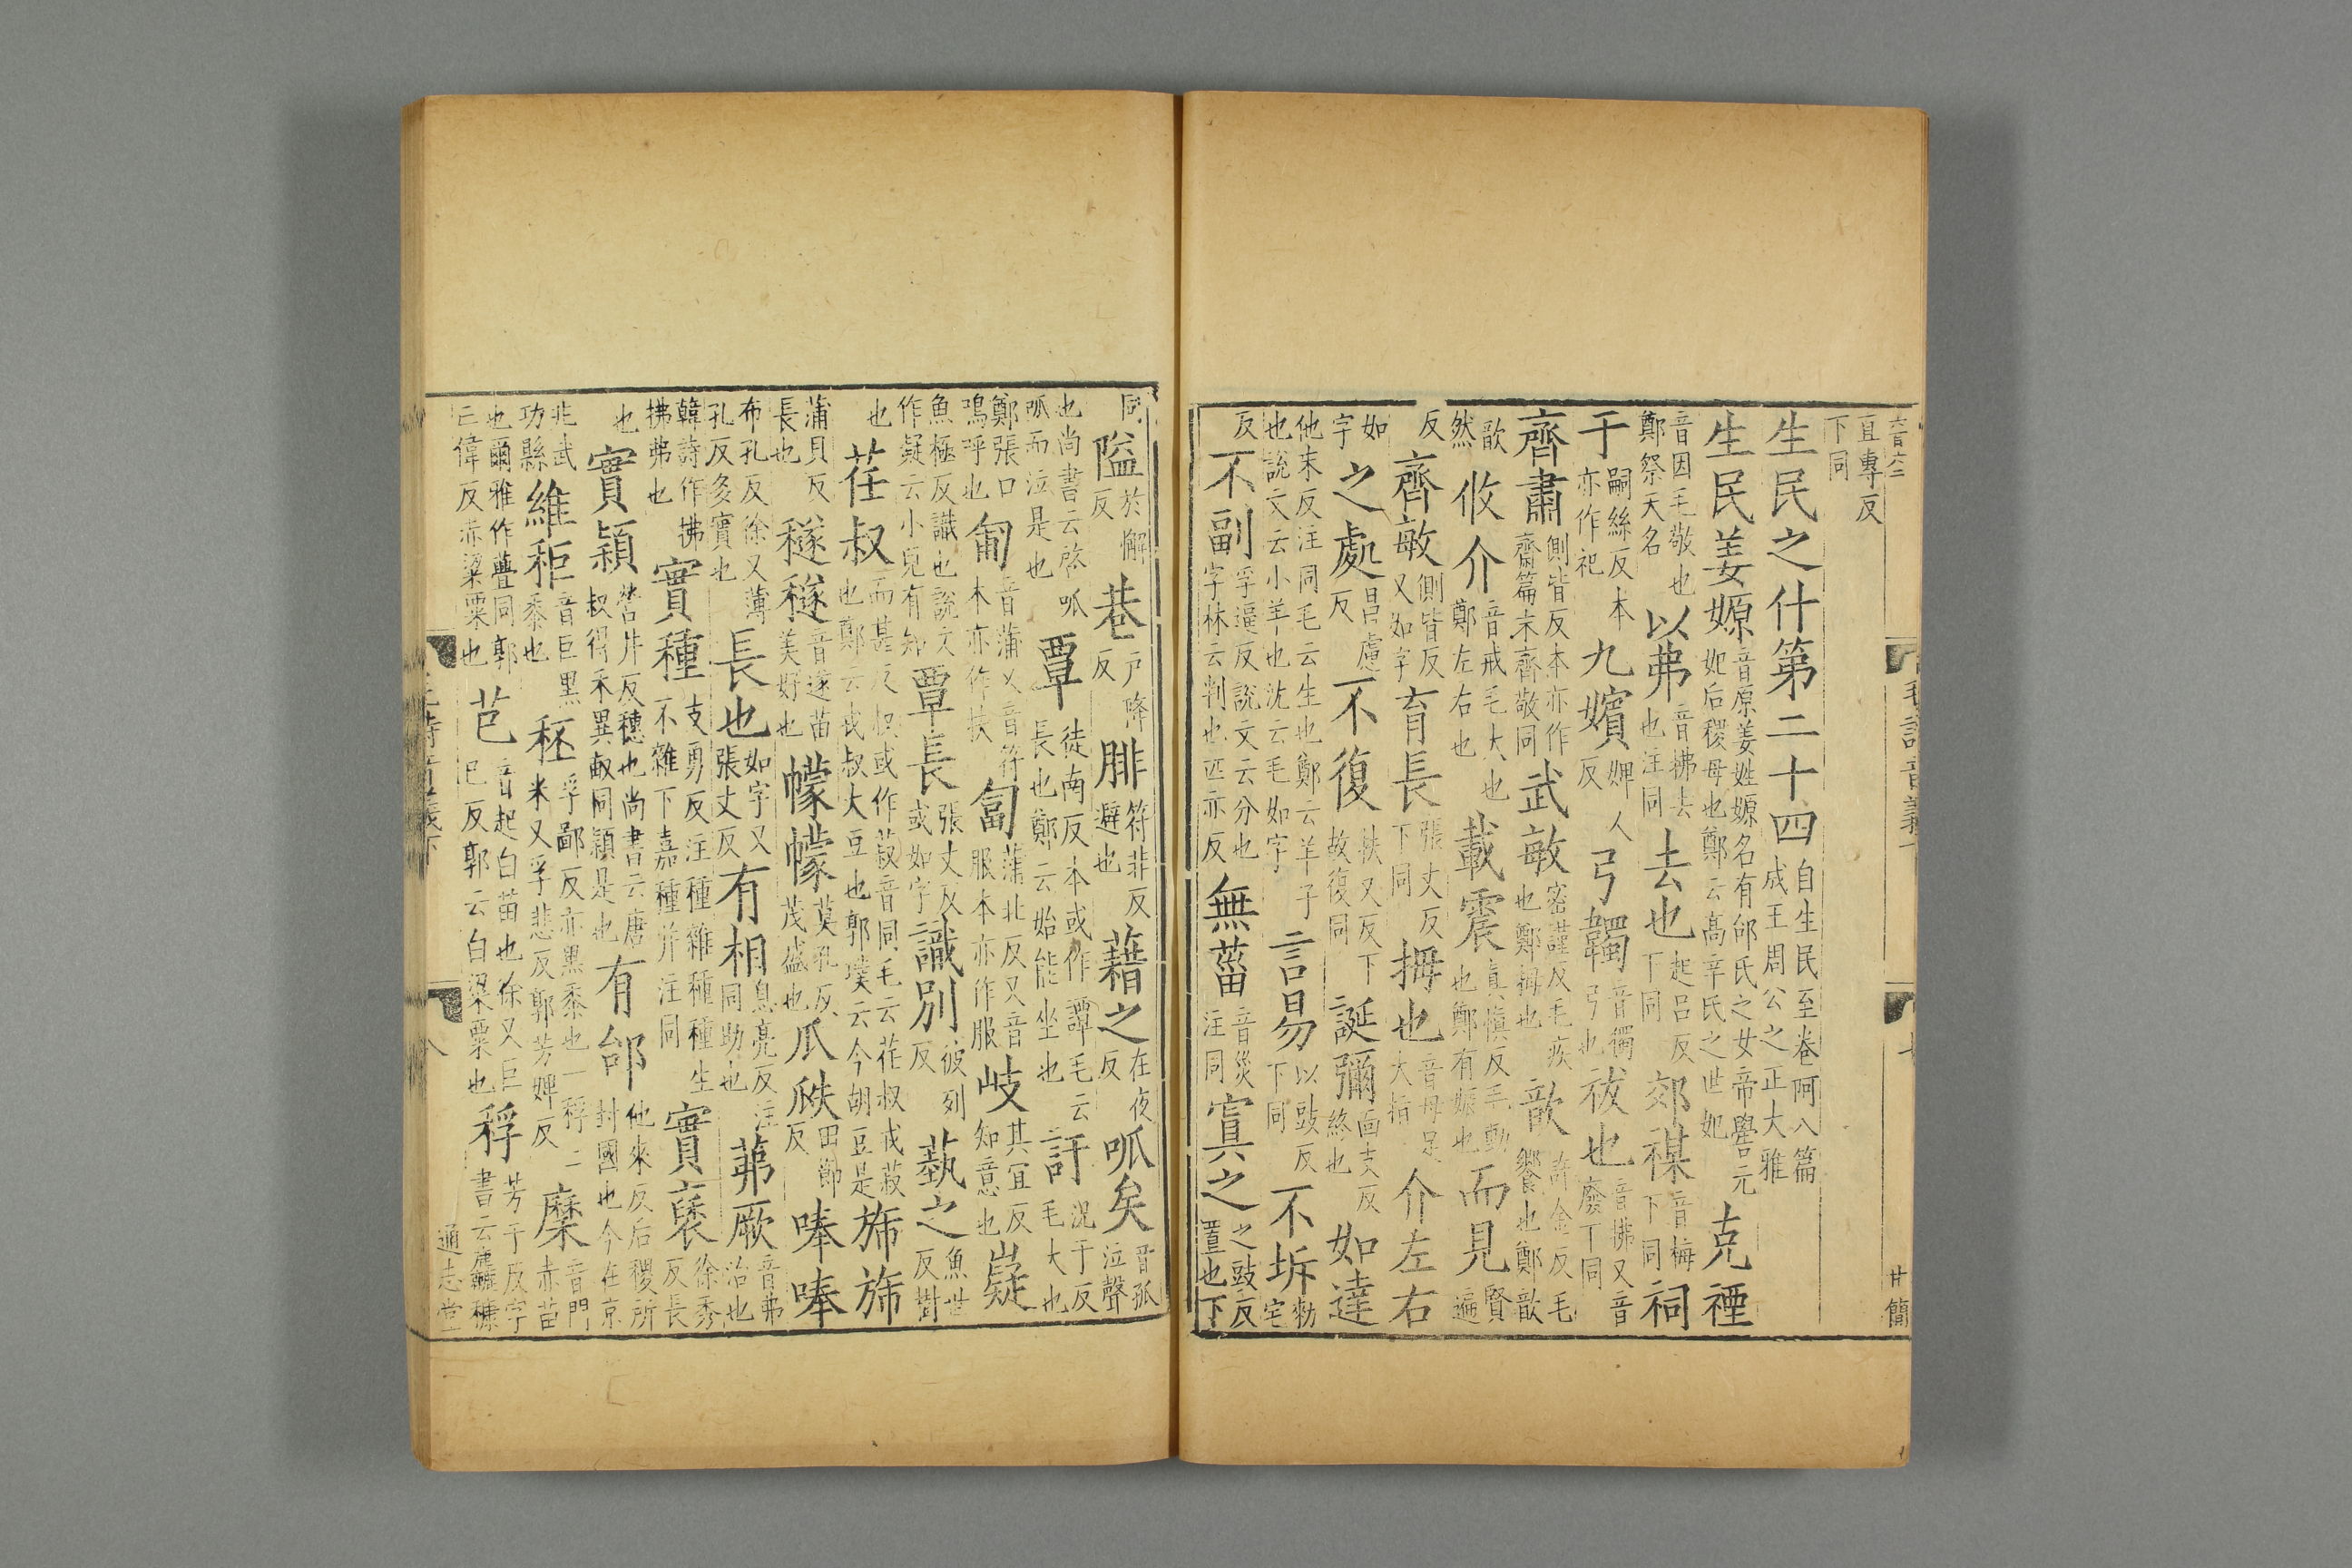 直專反下同
生民之什第二十四自生民至卷阿八篇成王周公之正大雅
生民姜嫄音原姜姓嫄名有邰氏之女帝嚳元妃后稷母也鄭云高辛氏之世妃克禋
音因毛敬也鄭祭天名以弗音拂去也注同去也起呂反下同郊禖音梅下同祠
于嗣絲反本亦作祀九嬪婢人反弓韣音獨弓也祓也音拂又音廢下同
齊肅側皆反本亦作齋篇末齊敬同武敏密謹反毛疾也鄭拇也歆許金反毛饗也鄭歆
歆然攸介音戒毛大也鄭左右也載震真慎反毛動也鄭有娠也而見賢遍
反齊敏側皆反又如字育長張丈反下同拇也音母足大指介左右
如字之處昌慮反不復扶又反下故復同誕彌面支反終也如達
他末反注同毛云生也鄭云羊子也說文云小羊也沈云毛如字言易以豉反下同不坼勑宅
反不副孚逼反說文云分也字林云判也匹亦反無菑音災注同寘之之豉反置也下
廿簡
同隘於懈反巷戶降反腓符非反避也藉之在夜反呱矣音孤泣聲
也尚書云啓呱呱而泣是也覃徒南反本或作譚毛云長也鄭云始能坐也訏況于反毛大也
鄭張口嗚呼也匍音蒲又音符本亦作扶匐蒲北反又音服本亦作服岐其宜反知意也嶷
魚極反識也說文作㘈云小兒有知覃長張丈反或如字識別彼列反蓺之魚世反樹
也荏叔而甚反叔或作菽音同毛云荏叔戎菽也鄭云戎叔大豆也郭璞云今胡豆是旆旆
蒲貝反長也穟穟音遂苗美好也幪幪莫孔反茂盛也瓜瓞田節反唪唪
布孔反徐又薄孔反多實也長也如字又張丈反有相息亮反注同助也茀厥音弗治也
韓詩作拂拂弗也實種支勇反注種雜種種生不雜下嘉種并注同實褎徐秀反長
也實穎營井反穗也尚書云唐叔得禾異畝同穎是也有邰他來反后稷所封國也今在京
兆武功縣維秬音巨黑黍也秠孚鄙反亦黑黍也一稃二米又孚悲反郭芳婢反穈音門赤苗
也爾雅作虋同郭亡偉反赤粱粟也芑音起白苗也徐又巨已反郭云白粱粟也稃芳于反字書云麤穅
八
通志堂